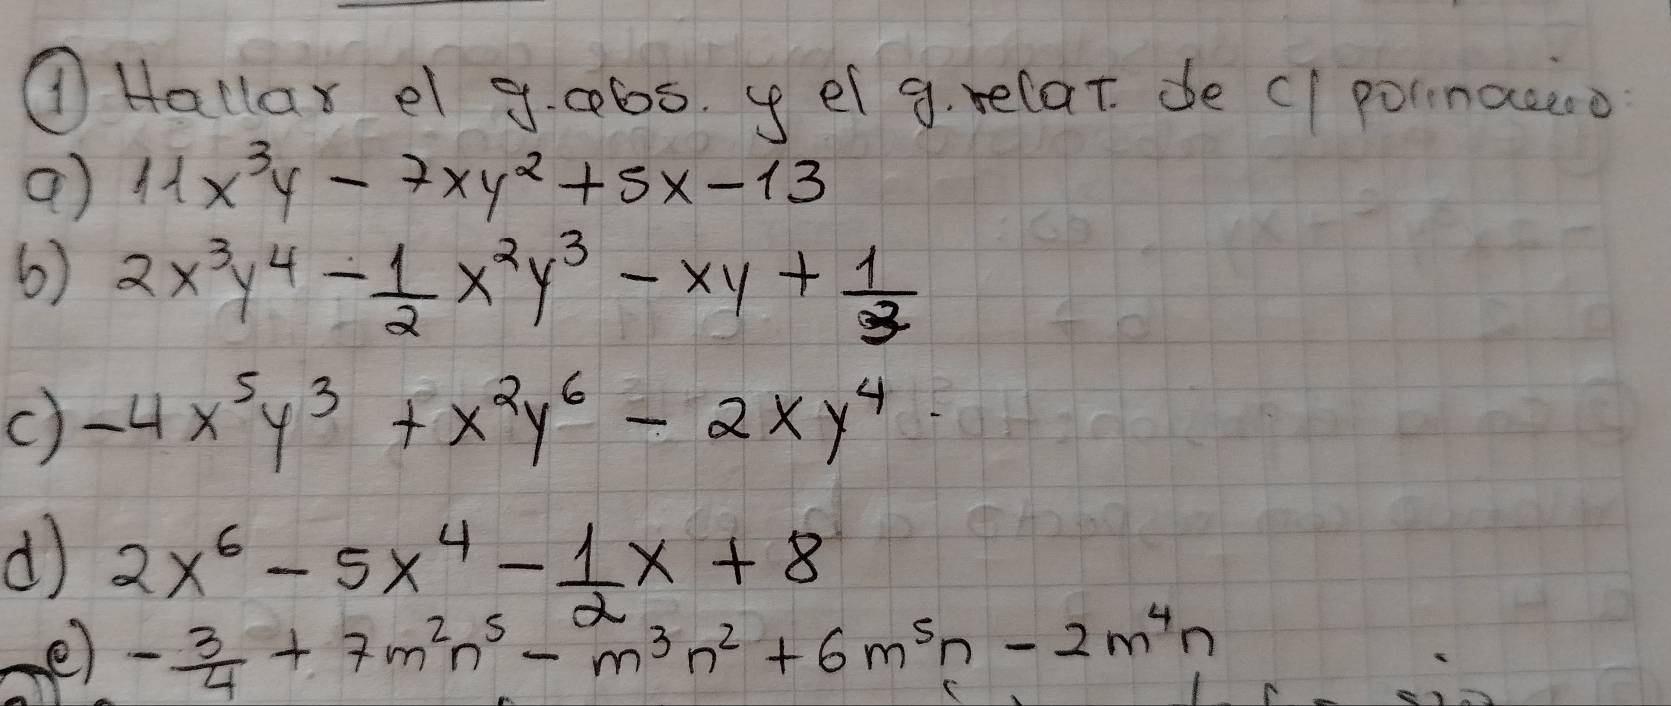 ① Hallar el g.abs. y el g.relat. de c/ polinomio:
a) 11x³y - 7xy² + 5x - 13
b) 2x³y⁴ - 1/2 x²y³ - xy + 1/3
c) -4x⁵y³ + x²y⁶ - 2xy⁴.
d) 2x⁶ - 5x⁴ - 1/2 x + 8
e) -3/4 + 7m²n⁵ - m³n² + 6m⁵n - 2m⁴n